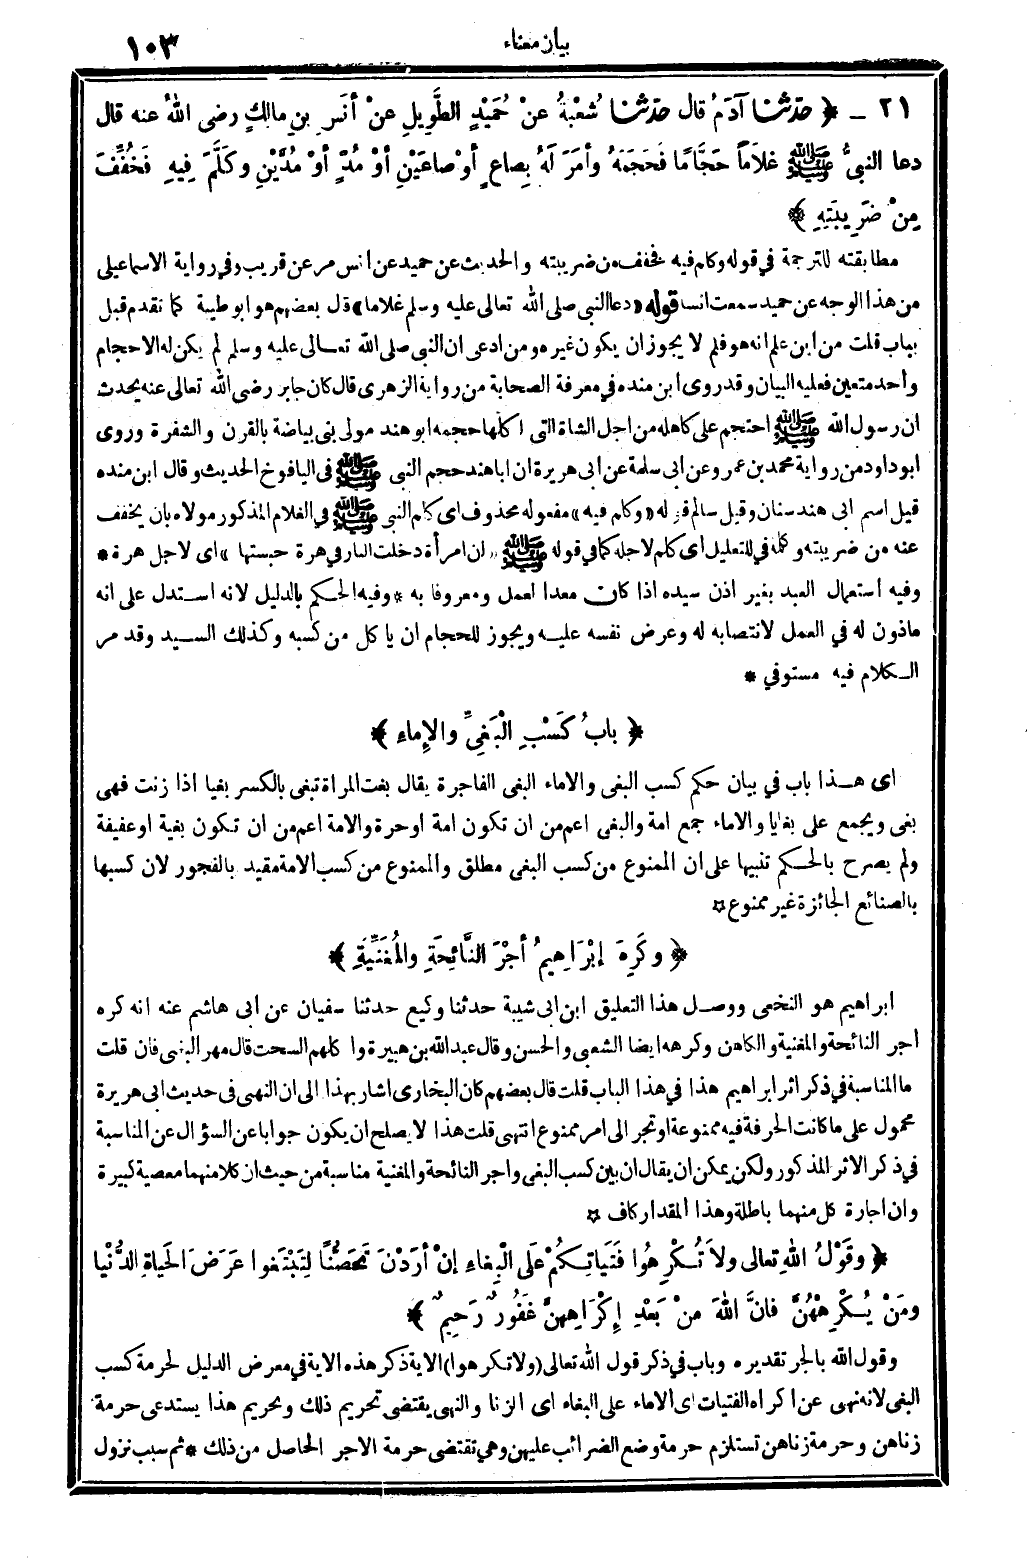 بيان معناه
١٠٣
٢١ ــ ﴿ حدثنا آدَمُ قال حدثنا شُعْبَةُ عنْ حُمَيْدٍ الطَّوِيلِ عنْ أنَسِ بنِ مالِكٍ رضى اللهُ عنه قال
دعا النبيُّ ﷺ غلاَماً حَجَّامًا فَحَجَمَهُ وأمَرَ لَهُ بِصاعٍ أو صاعَيْنِ أوْ مُدٍّ أوْ مُدَّيْنِ وكَلَّمَ فِيهِ فَخُفِّفَ
مِنْ ضَرِيبَتِهِ ﴾
مطابقته للترجمة في قوله وكام فيه فخفف من ضريبته والحديث عن حميد عن انس مر عن قريب وفي رواية الاسماعيلى
من هذا الوجه عن حميد سمعت انسا قوله «دعا النبي صلى الله تعالى عليه وسلم غلاما» قال بعضهم هو ابو طيبة كما تقدم قبل
بباب قلت من ابن علم انه هو فلم لا يجوز ان يكون غيره ومن ادعى ان النبي صلى الله تعالى عليه وسلم لم يكن له الا حجام
واحد متعين فعليه البيان وقد روى ابن منده في معرفة الصحابة من رواية الزهرى قال كان جابر رضى الله تعالى عنه يحدث
ان رسول الله ﷺ احتجم على كاهله من اجل الشاة التى اكلها حجمه ابو هند مولى بنى بياضة بالقرن والشفرة وروى
ابو داود من رواية محمد بن عمرو عن ابى سلمة عن ابى هريرة ان ابا هند حجم النبى ﷺ فى اليافوخ الحديث وقال ابن منده
قيل اسم ابى هند سنان وقيل سالم قوله «وكام فيه» مفعوله محذوف اى كام النبى ﷺ في الغلام المذكور مولاه بان يخفف
عنه من ضريبته وكلمة في للتعليل اى كلم لاجله كما في قوله ﷺ «ان امرأة دخلت النار في هرة حبستها» اى لاجل هرة *
وفيه استعمال العبد بغير اذن سيده اذا كان معدا لعمل ومعروفا به * وفيه الحكم بالدليل لانه استدل على انه
ماذون له في العمل لانتصابه له وعرض نفسه عليه ويجوز للحجام ان ياكل من كسبه وكذلك السيد وقد مر
الكلام فيه مستوفي *
﴿ بابُ كَسْبِ الْبَغِىِّ والإِماءِ ﴾
اى هذا باب في بيان حكم كسب البغى والاماء البغى الفاجرة يقال بغت المراة تبغى بالكسر بغيا اذا زنت فهى
بغى ويجمع على بغايا والاماء جمع امة والبغى اعم من ان تكون امة او حرة والامة اعم من ان تكون بغية او عفيفة
ولم يصرح بالحكم تنبيها على ان الممنوع من كسب البغى مطلق والممنوع من كسب الامة مقيد بالفجور لان كسبها
بالصنائع الجائزة غير ممنوع ¤
﴿ وكَرِهَ إبْرَاهِيمُ أجْرَ النَّائِحَةِ والْمُغَنِّيَةِ ﴾
ابراهيم هو النخعى ووصل هذا التعليق ابن ابى شيبة حدثنا وكيع حدثنا سفيان عن ابى هاشم عنه انه كره
أجر النائحة والمغنية والكاهن وكرهه ايضا الشعبى والحسن وقال عبد الله بن هبيرة وا كلهم السحت قال مهر البغى فان قلت
ما المناسبة في ذكر اثر ابراهيم هذا في هذا الباب قلت قال بعضهم كان البخارى اشار بهذا الى ان النهى فى حديث ابى هريرة
محمول على ما كانت الحرفة فيه ممنوعة او تجر الى امر ممنوع انتهى قلت هذا لا يصلح ان يكون جوابا عن السؤال عن المناسبة
في ذكر الاثر المذكور ولكن يمكن ان يقال ان بين كسب البغى واجر النائحة والمغنية مناسبة من حيث ان كلا منهما معصية كبيرة
وان اجارة كل منهما باطلة وهذا المقدار كاف ¤
﴿ وقَوْلُ اللهِ تعالى ولاَ تُكْرِهُوا فَتَياتِكُمْ علَى الْبِغاءِ إنْ أرَدْنَ تَحَصُّنًا لِتَبْتَغوا عَرَضَ الحَياةِ الدُّنْيا
ومَنْ يُكْرِهْهُنَّ فانَّ اللهَ منْ بَعْدِ إكْرَاهِهِنَّ غَفُورٌ رَحِيمٌ ﴾
وقول الله بالجر تقديره وباب في ذكر قول الله تعالى (ولا تكرهوا) الاية ذكر هذه الاية في معرض الدليل لحرمة كسب
البغى لانه نهى عن اكراه الفتيات اى الاماء على البغاء اى الزنا والنهى يقتضى تحريم ذلك وتحريم هذا يستدعى حرمة
زناهن وحرمة زناهن تستلزم حرمة وضع الضرائب عليهن وهي تقتضى حرمة الاجر الحاصل من ذلك * ثم سبب نزول